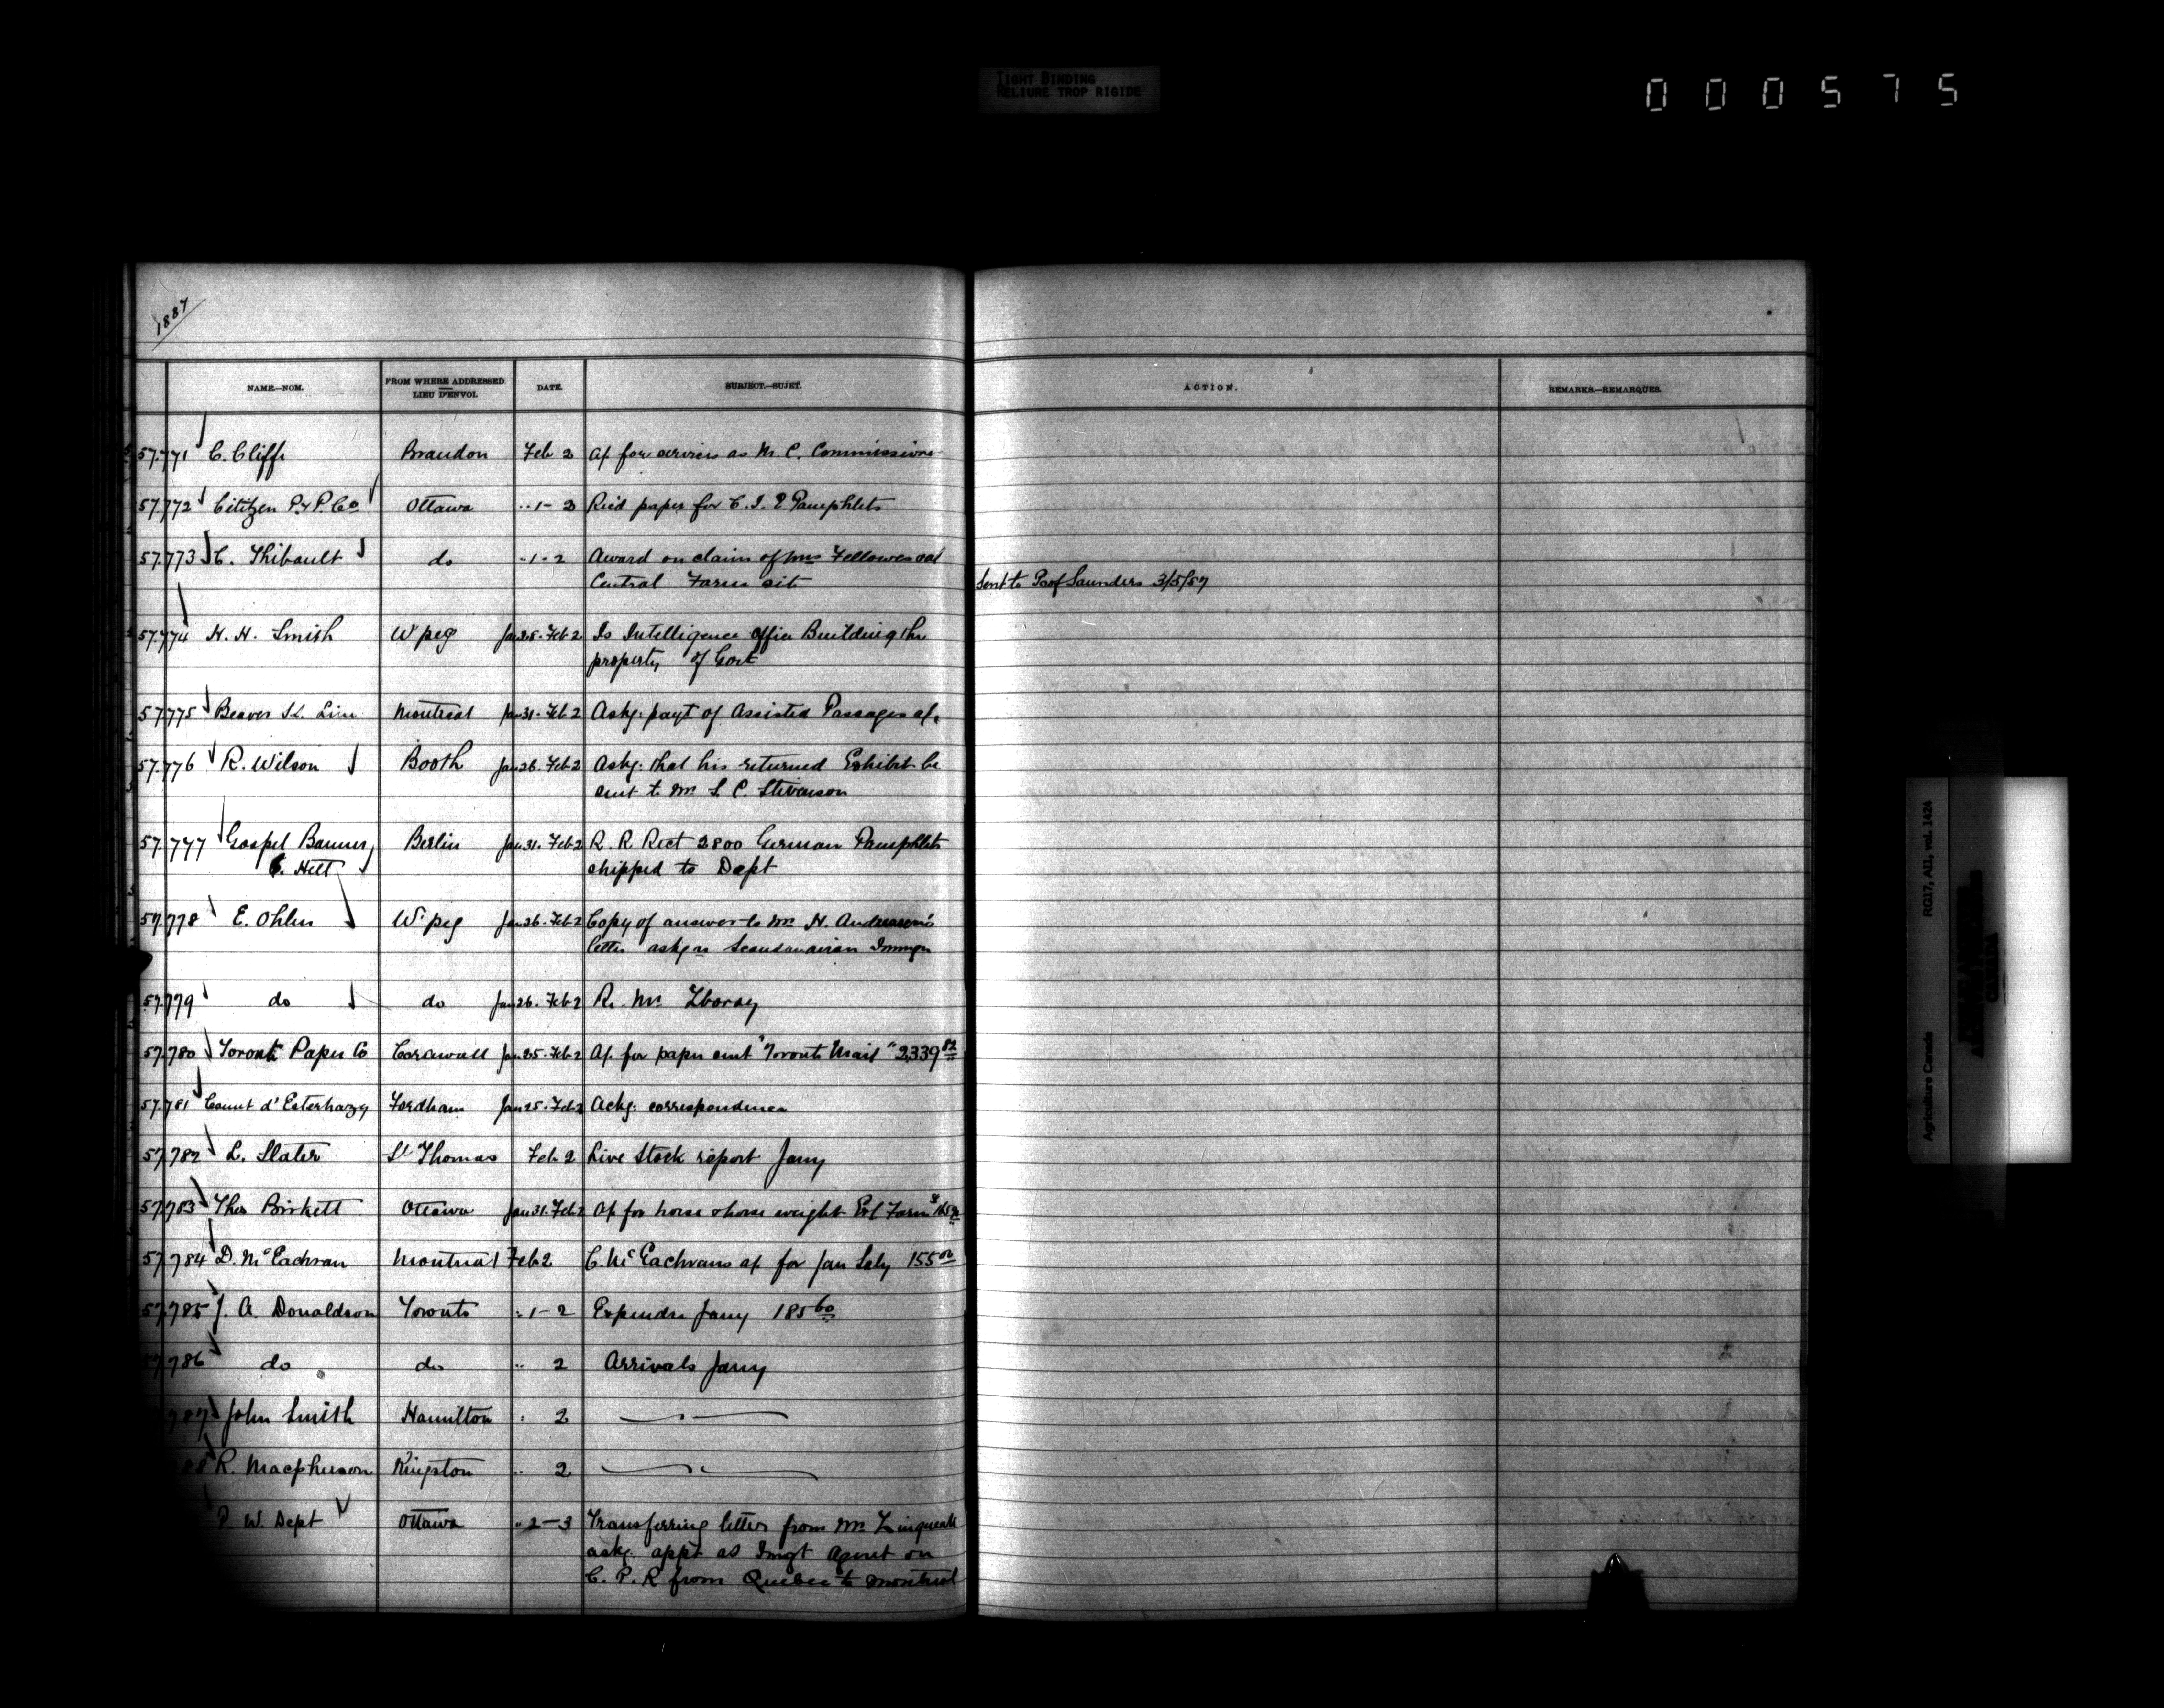 TIGHT BINDING
RELIURE TROP RIGIDE
000575
1887
NAME.—NOM. FROM WHERE ADDRESSED. LIEU D'ENVOI. DATE. SUBJECT.—SUJET. ACTION. REMARKS.—REMARQUES.
57.771 C. Cliffe Brandon Feb 2 a/c for services as M. C. Commissione
57.772 Citizen P. & P. Co Ottawa " 1-2 Rec'd paper for C. I. E Pamphlets
57.773 C. Thibault do " 1-2 Award on claim of Mrs Fellowes
Central Farm site Sent to Prof Saunders 3/5/87
57.774 H. H. Smith W'peg Jan 28. Feb 2 Is Intelligence Office Building the
property of Govt
57.775 Beaver SS. Line Montreal Jan 31. Feb 2 Askg: payt of Assisted Passages a/c
57.776 R. Wilson Booth Jan 26. Feb 2 Askg. that his returned Exhibit be
sent to Mr S. C. Stevenson
57.777 Gospel Banner Berlin Jan 31. Feb 2 R. R. Rect 2800 German Pamphlets
shipped to Dept
57.778 E. Ohlen W'peg Jan 26. Feb 2 Copy of answer to Mr. H. Anderson's
letter askg re Scandanavian Immgn
57.779 do do Jan 26. Feb 2 Re. Mr. Zboray
57.780 Toronto Paper Co Cornwall Jan 25. Feb 2 a/c for paper sent "Toronto Mail" 2339 82
57.781 Count d'Esterhazy Fordham Jan 25. Feb 2 Ackg: correspondence
57.782 L. Slater St Thomas Feb 2 Live Stock report Jany
57.783 Thos Birkett Ottawa Jan 31. Feb 2 a/c for horse & horse weight Exl Farm
57.784 D. McEachran Montreal Feb 2 C. McEachrans a/c for Jan Saly 155 00
57.785 J. A. Donaldson Toronto " 1-2 Expendre Jany 185 60
57.786 do do " 2 Arrivals Jany
787 John Smith Hamilton " 2
88 R. Macpherson Kingston " 2
P. W. Dept Ottawa " 2-3 Transferring letter from Mr
askg. appt as Imgt Agent on
C. P. R from Quebec to Montreal
Agriculture Canada RG17, AII, vol. 1424